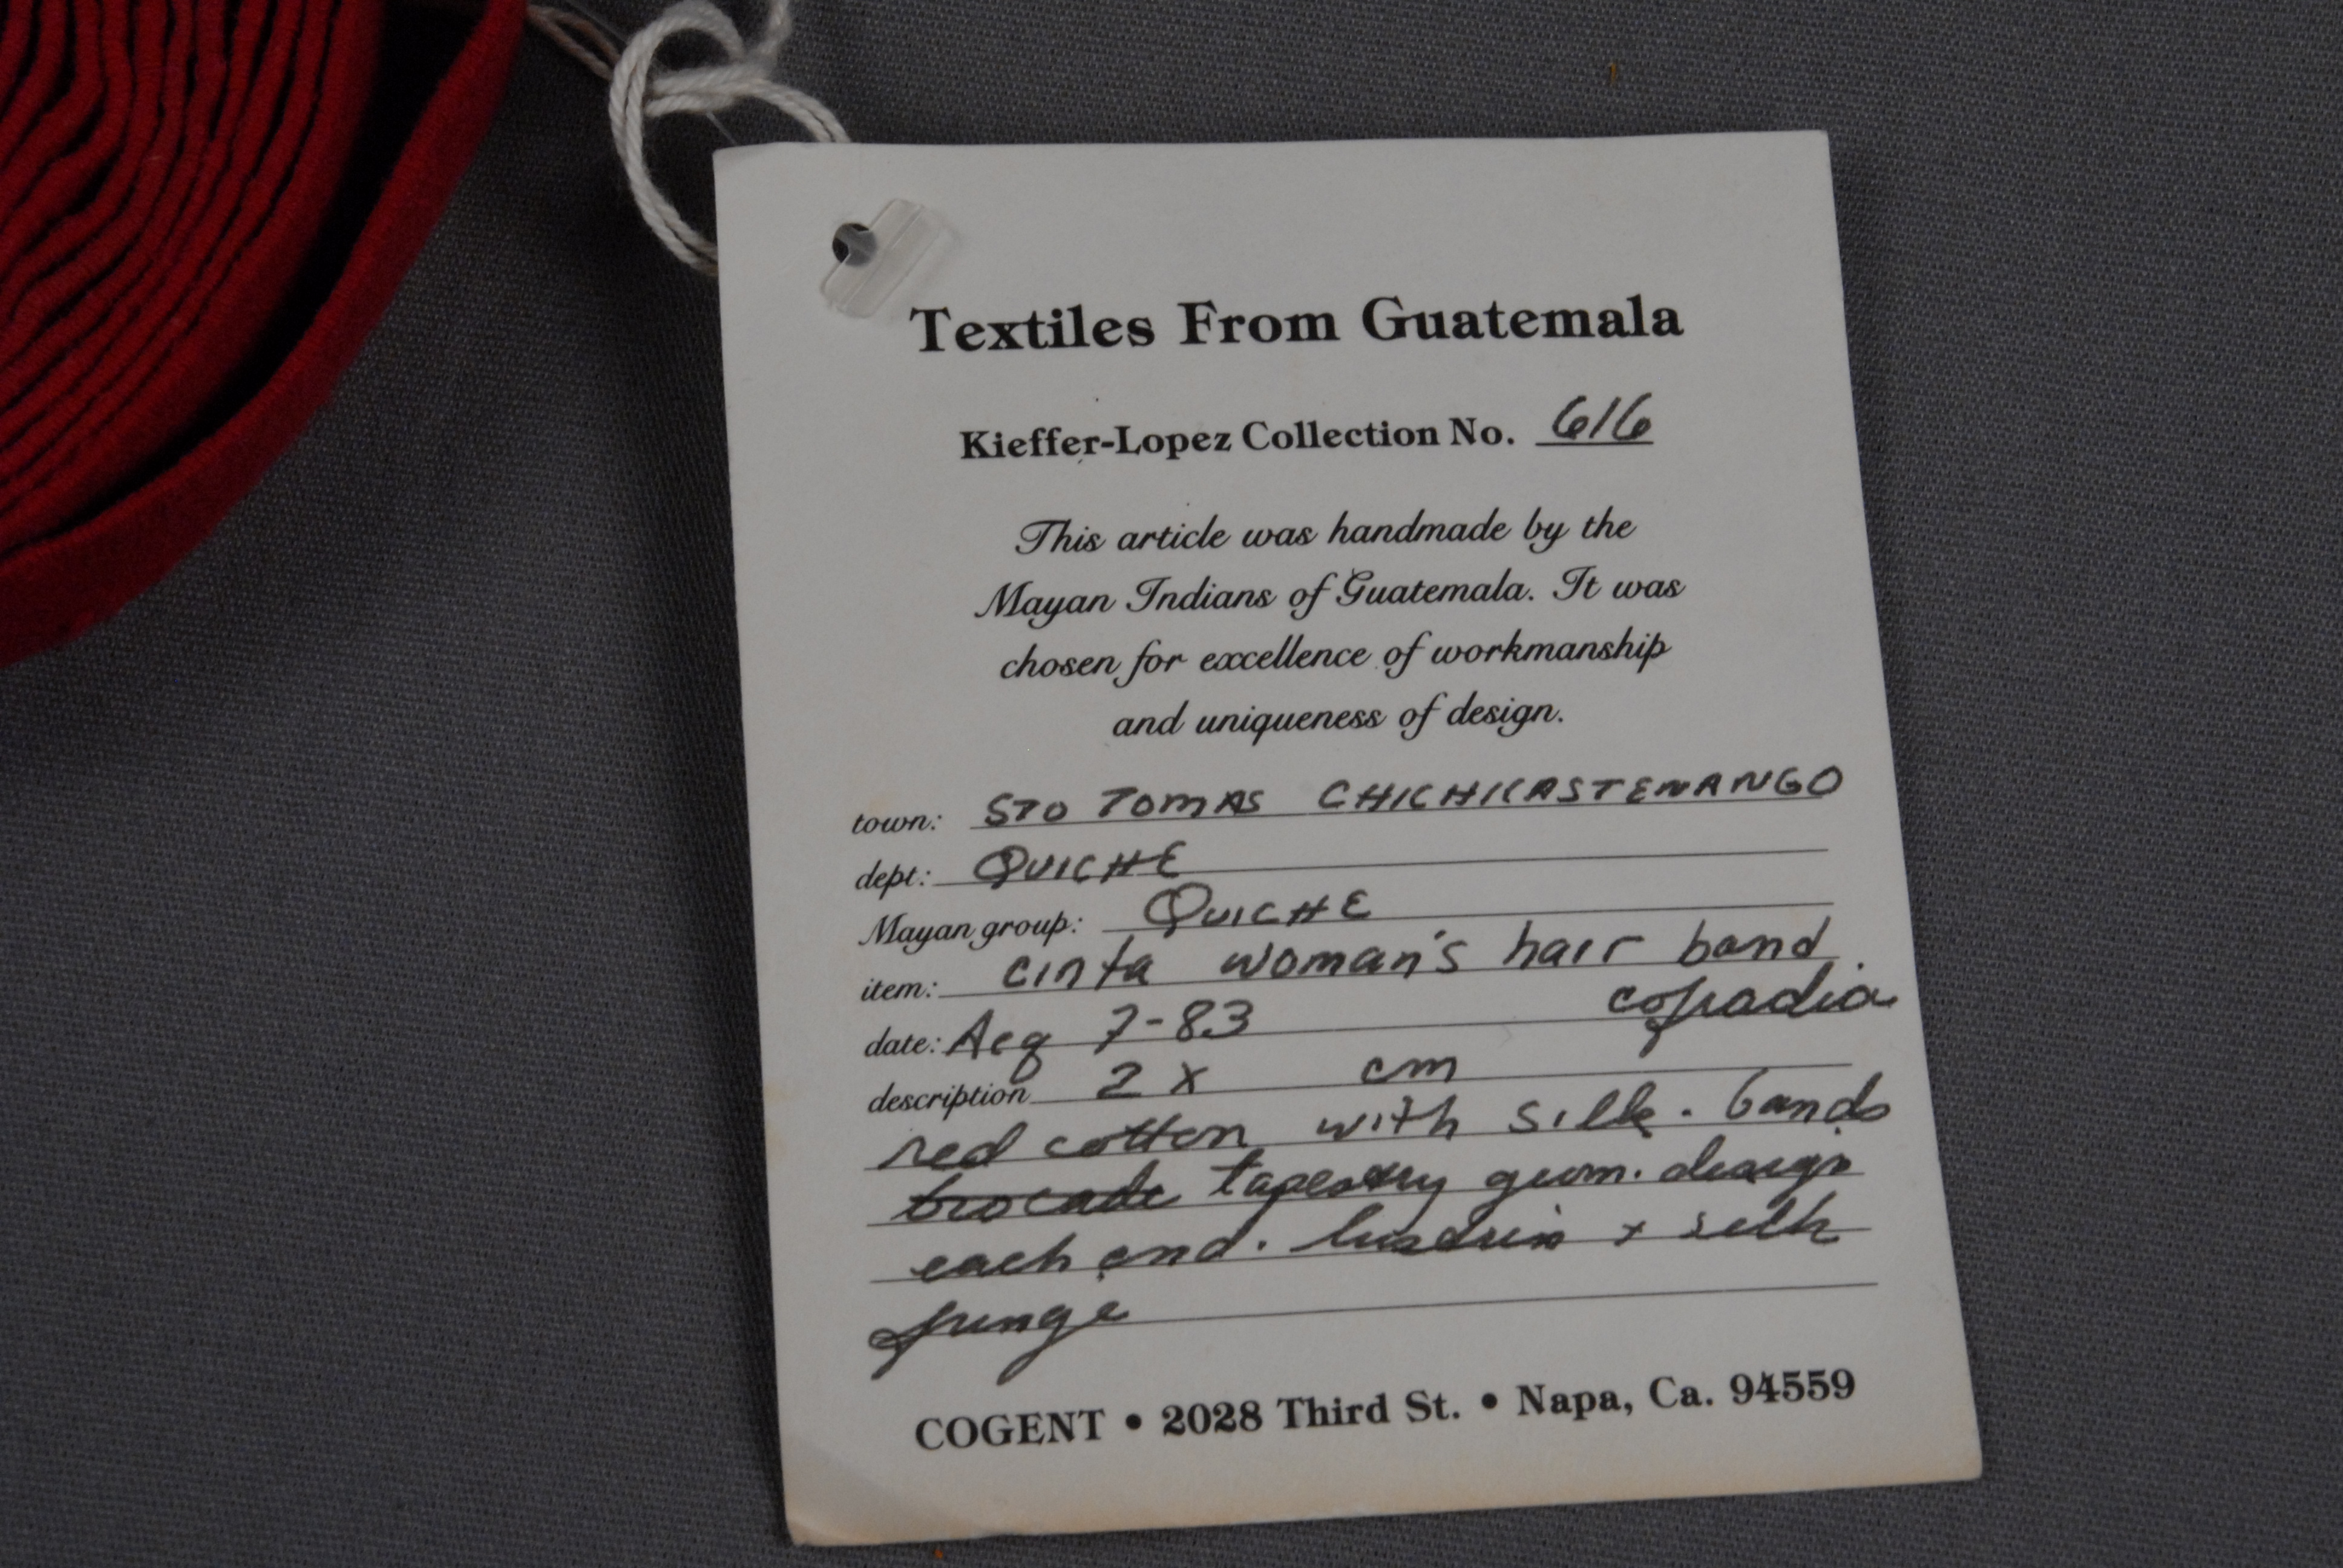 Textiles From Guatemala
Kieffer-Lopez Collection No. 616
This article was handmade by the
Mayan Indians of Guatemala. It was
chosen for excellence of workmanship
and uniqueness of design.
town: STO TOMAS CHICHICASTENANGO
dept: QUICHE
Mayan group: QUICHE
item: cinta woman's hair band
date: Acq 7-83 cofradia
description 2 x cm
red cotton with silk. bands
brocade tapestry geom. design
each end. lustrin + silk
fringe
COGENT • 2028 Third St. • Napa, Ca. 94559